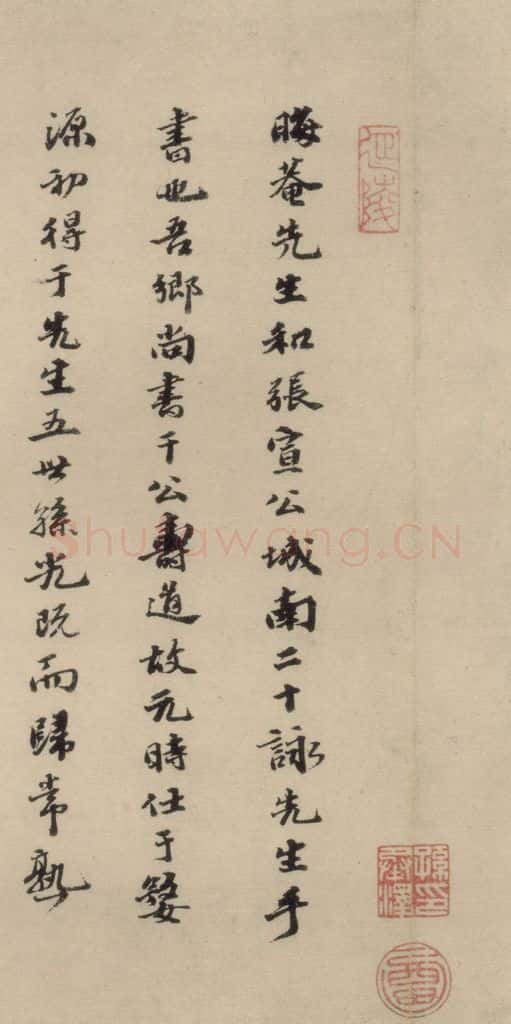 晦菴先生和張宣公城南二十詠先生手
書也吾鄉尚書干公壽道故元時仕于婺
源初得于先生五世孫光既而歸常熟
延陵
孫承澤印
Shufawang.CN